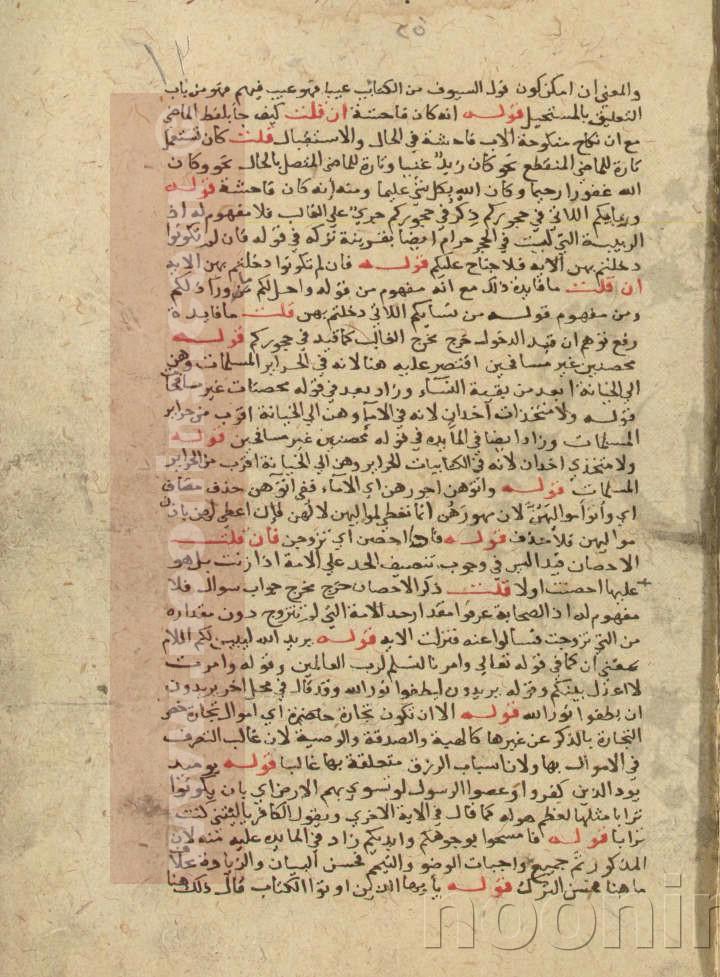 والمعني ان امكن كون فول السيوف من الكتائب عيبا فهو عيب فيهم فهو من باب
التعليق بالمستحيل قوله انه كان فاحشة ان قلت كيف جا بلفظ الماضي
مع ان نكاح منكوحة الاب فاحشة في الحال والاستقبال قلت كان تستعمل
تارة للماضي المنقطع نحو كان زيد غنيا وتارة للماضي المتصل بالحال نحو وكان
الله غفورا رحيما وكان الله بكل شي عليما ومنه انه كان فاحشة قوله
وربايبكم اللاتي في حجوركم ذكر في حجوركم جري علي الغالب فلا مفهوم له اذ
الربيبة التي ليست في الحجر حرام ايضا بقرينة تركه في قوله فان لم تكونوا
دخلتم بهن الايه فلا جناح عليكم قوله فان لم تكونوا دخلتم بهن الايه
ان قلت ما فايدة ذلك مع انه مفهوم من قوله واحل لكم ما ورا ذلكم
ومن مفهوم قوله من نسايكم اللاتي دخلتم بهن قلت ما فايدة
رفع توهم ان قيد الدخول خرج مخرج الغالب كما قيد في حجوركم قوله
محصنين غير مسافحين اقتصر عليه هنا لانه في الحراير المسلمات وهن
الي الخيانة ابعد من بقية النساء وزاد بعد في قوله محصنات غير مسافحات
قوله ولا متخذات أخدان لانه في الامآ وهن الي الخيانة اقرب من حراير
المسلمات وزاد ايضا في المايده في قوله محصنين غير مسافحين قوله
ولا متخذي اخدان لانه في الكتابيات الحراير وهن الي الخيانة اقرب من الحراير
المسلمات قوله واتوهن اجورهن اي الامآء ففي اتوهن حذف مضاف
اي واتوا مواليهن لان مهورهن انما تعطي لمواليهن لا لهن فان اعطي لهن باذن
مواليهن فلا حذف قوله فاذا احصن اي تزوجن فان قلت
الاحصان قيد ليس في وجوب تنصيف الحد علي الامة اذا زنت بل هو
عليها احصنت اولا قلت ذكر الاحصان خرج مخرج جواب سوال فلا
مفهوم له اذ الصحابة عرفوا مقدار حد الامة التي لم تتزوج دون مقداره
من التي تزوجت فسالوا عنه فنزلت الايه قوله يريد الله ليبين لكم اللام
بمعني ان كما في قوله تعالي وامرنا لنسلم لرب العالمين وقوله وامرت
لاعدل بينكم وقوله يريدون ليطفوا نور الله وقد قال في محل اخر يريدون
ان يطفوا نور الله قوله الا ان تكون تجارة حاضرة اي اموال تجارة خص
التجارة بالذكر عن غيرها كالهبة والصدقة والوصية لان غالب التصرف
في الاموال بها ولان اسباب الرزق متعلقة بها غالبا قوله يوميد
يود الذين كفروا وعصوا الرسول لو تسوي بهم الارض اي بان يكونوا
ترابا مثلها لعظم هوله كما قال في الاية الاخري ويقول الكافر يا ليتني كنت
ترابا قوله فامسحوا بوجوهكم وايديكم زاد في المايده عليه منه لان
المذكور ثم جميع واجبات الوضو والتيمم فحسن البيان والزيادة بخلاف
ما هنا فحسن الترك قوله يا ايها الذين اوتوا الكتاب قال ذلك هنا